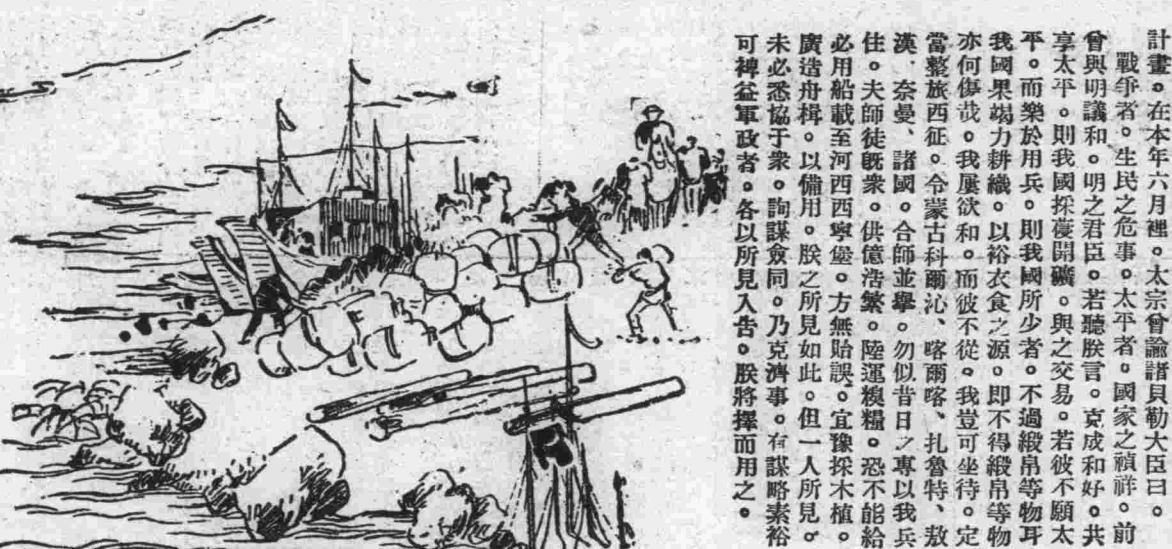 計畫。在本年六月裡。太宗曾諭諸貝勒大臣曰。
戰爭者。生民之危事。太平者。國家之禎祥。前
曾與明議和。明之君臣。若聽朕言。克成和好。共
享太平。則我國採蓡開礦。與之交易。若彼不願太
平。而樂於用兵。則我國所少者。不過緞帛等物耳
我國果竭力耕織。以裕衣食之源。即不得緞帛等物
亦何傷哉。我屢欲和。而彼不從。我豈可坐待。定
當整旅西征。令蒙古科爾沁、喀爾喀、扎魯特、敖
漢、奈曼、諸國。合師並舉。勿似昔日之專以我兵
住。夫師徒既衆。供億浩繁。陸運糗糧。恐不能給
必用船載至河西西寧堡。方無貽誤。宜豫採木植。
廣造舟楫。以備用。朕之所見如此。但一人所見。
未必悉協于衆。詢謀僉同。乃克濟事。有謀略素裕
可裨益軍政者。各以所見入告。朕將擇而用之。